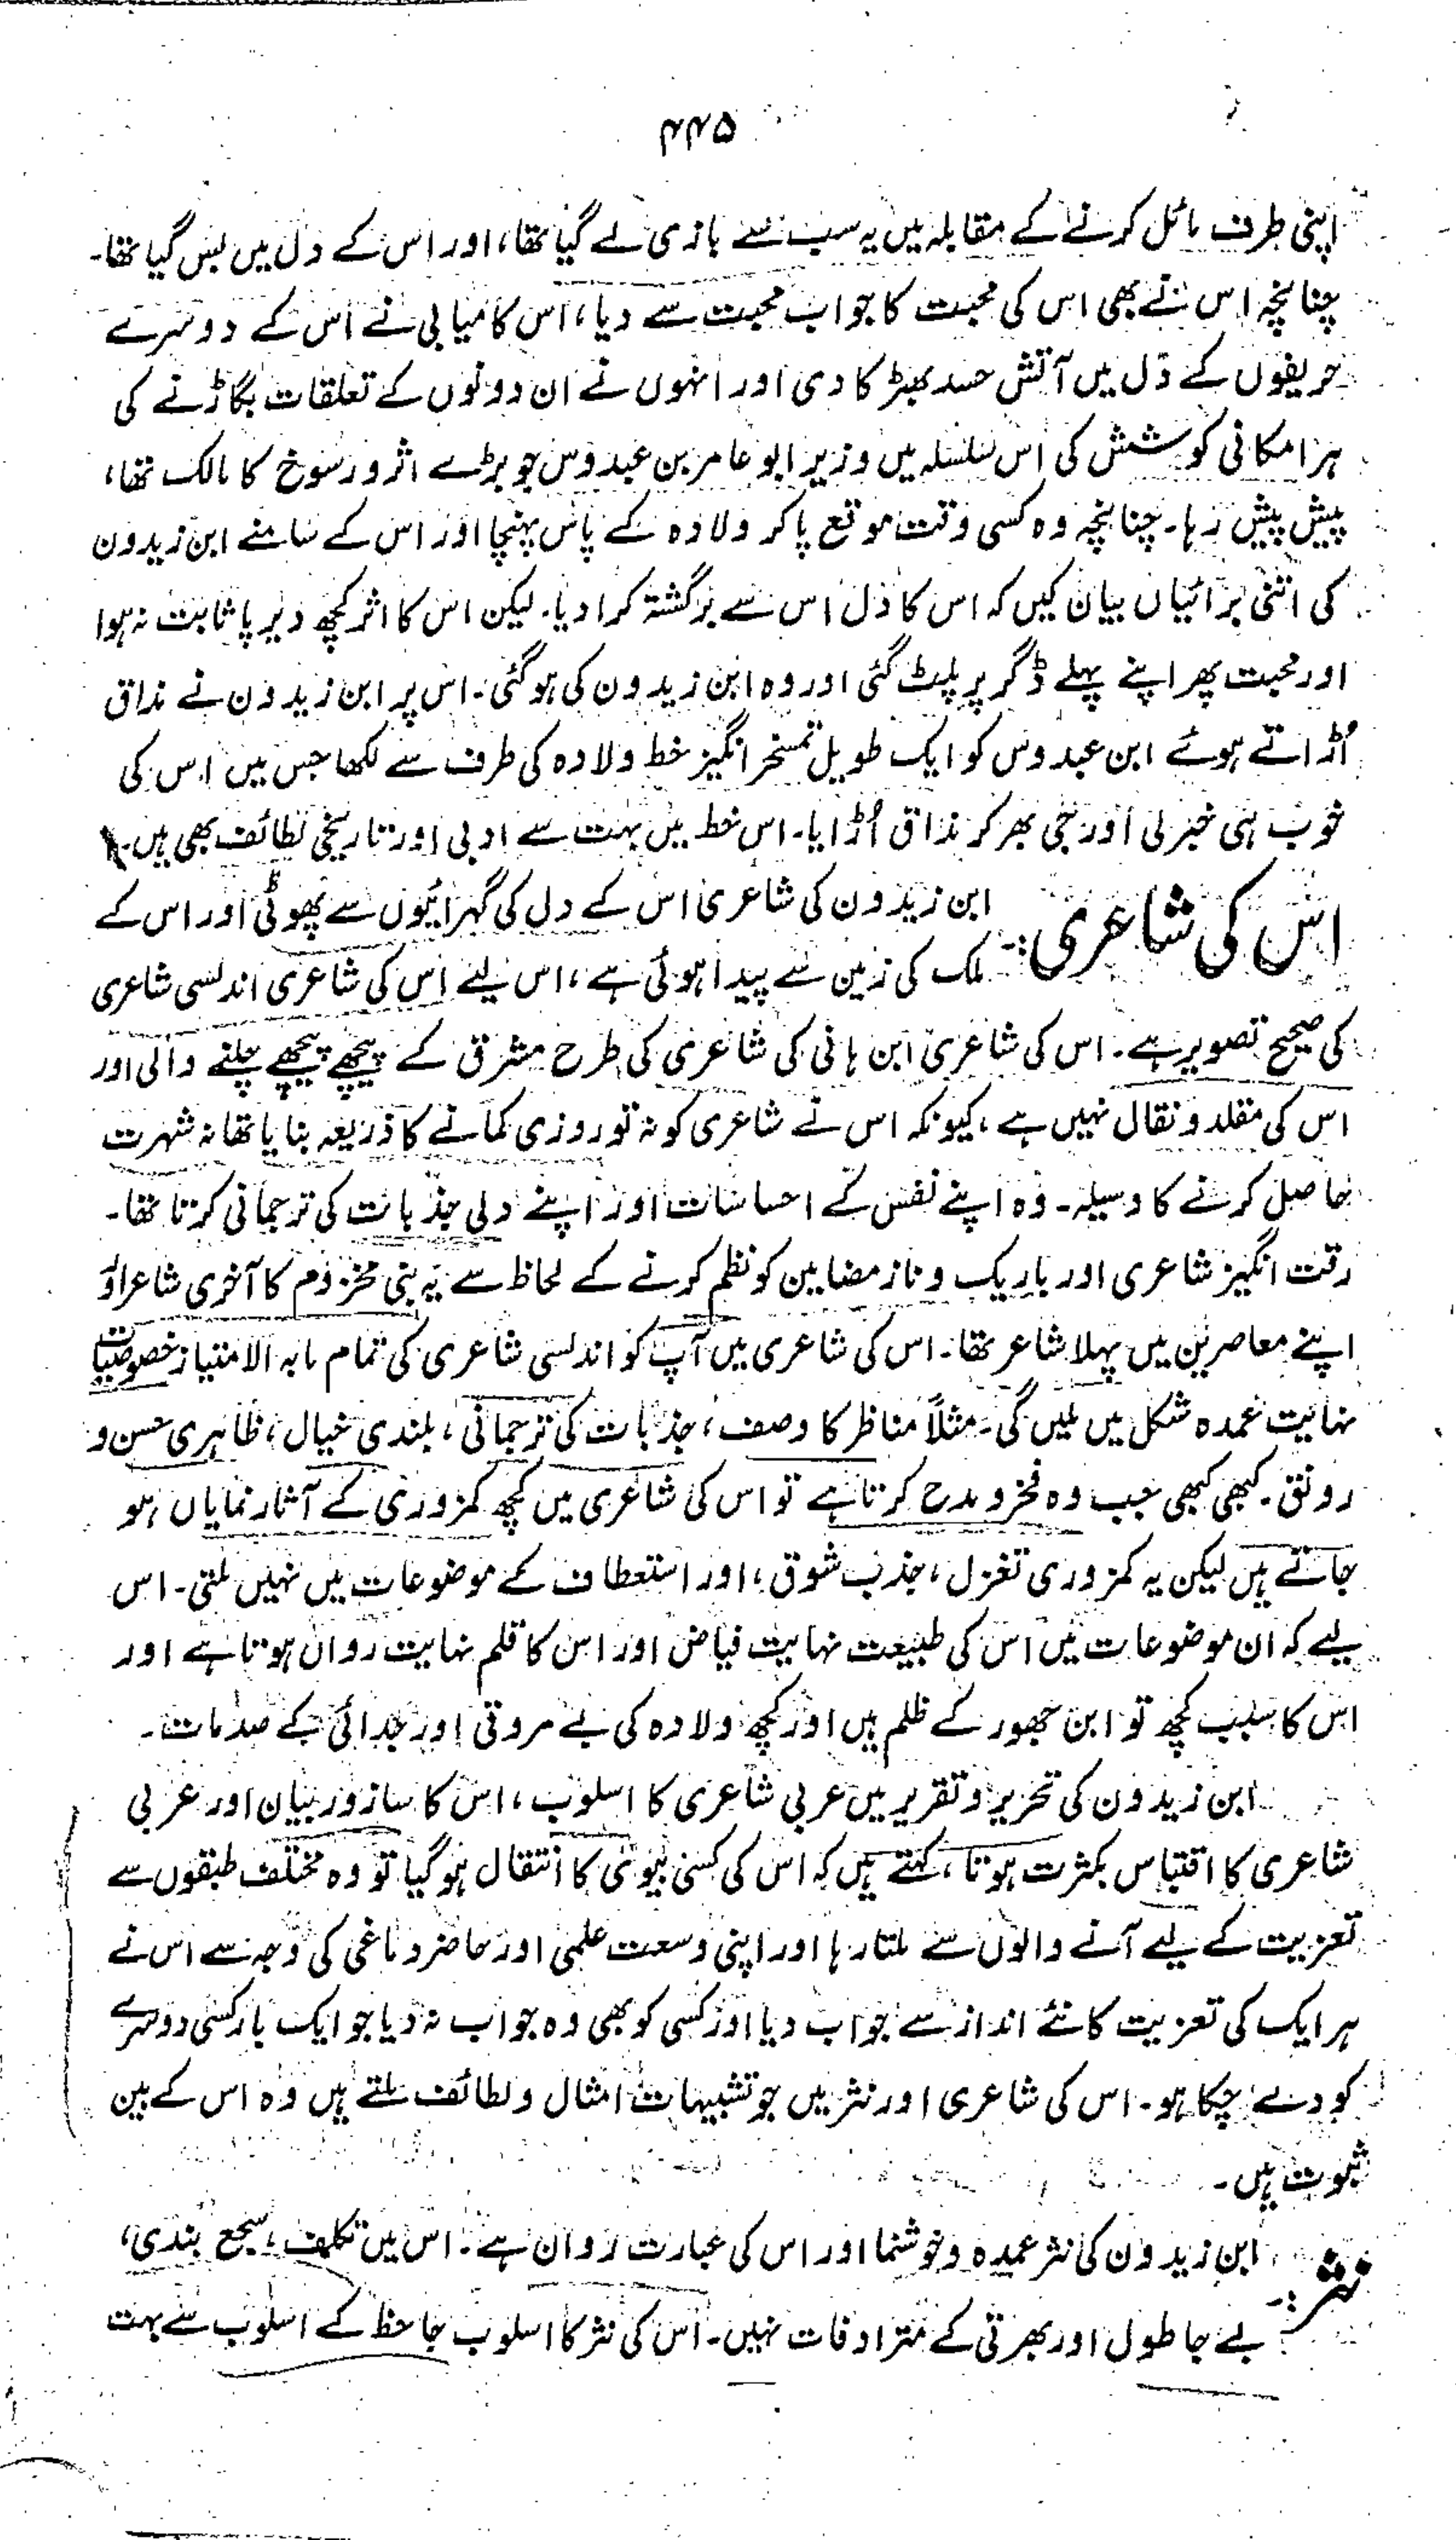 ۴۴۵
اپنی طرف مائل کرنے کے مقابلہ میں یہ سب سے بازی لے گیا تھا، اور اس کے دل میں بس گیا تھا۔
چنانچہ اس نے بھی اس کی محبت کا جواب محبت سے دیا، اس کامیابی نے اس کے دوسرے
حریفوں کے دل میں آتش حسد بھڑکا دی اور انہوں نے ان دونوں کے تعلقات بگاڑنے کی
ہر امکانی کوشش کی اس سلسلہ میں وزیر ابو عامر بن عبدوس جو بڑے اثر و رسوخ کا مالک تھا،
پیش پیش رہا۔ چنانچہ وہ کسی وقت موقع پا کر ولادہ کے پاس پہنچا اور اس کے سامنے ابن زیدون
کی اتنی برائیاں بیان کیں کہ اس کا دل اس سے برگشتہ کرا دیا۔ لیکن اس کا اثر کچھ دیرپا ثابت نہ ہوا
اور محبت پھر اپنے پہلے ڈگر پر پلٹ گئی اور وہ ابن زیدون کی ہو گئی۔ اس پر ابن زیدون نے مذاق
اُڑاتے ہوئے ابن عبدوس کو ایک طویل تمسخر انگیز خط ولادہ کی طرف سے لکھا جس میں اس کی
خوب ہی خبر لی اور جی بھر کر مذاق اُڑایا۔ اس خط میں بہت سے ادبی اور تاریخی لطائف بھی ہیں۔
اس کی شاعری:۔ ابن زیدون کی شاعری اس کے دل کی گہرائیوں سے پھوٹی اور اس کے
ملک کی زمین سے پیدا ہوئی ہے، اس لیے اس کی شاعری اندلسی شاعری
کی صحیح تصویر ہے۔ اس کی شاعری ابن ہانی کی شاعری کی طرح مشرق کے پیچھے پیچھے چلنے والی اور
اس کی مقلد و نقال نہیں ہے، کیونکہ اس نے شاعری کو نہ تو روزی کمانے کا ذریعہ بنایا تھا نہ شہرت
حاصل کرنے کا وسیلہ۔ وہ اپنے نفس کے احساسات اور اپنے دلی جذبات کی ترجمانی کرتا تھا۔
رقت انگیز شاعری اور باریک و ناز مضامین کو نظم کرنے کے لحاظ سے یہ بنی مخزوم کا آخری شاعر اور
اپنے معاصرین میں پہلا شاعر تھا۔ اس کی شاعری میں آپ کو اندلسی شاعری کی تمام مابہ الامتیاز خصوصیات
نہایت عمدہ شکل میں ملیں گی۔ مثلاً مناظر کا وصف، جذبات کی ترجمانی، بلندی خیال، ظاہری حسن و
رونق۔ کبھی کبھی جب وہ فخر و مدح کرتا ہے تو اس کی شاعری میں کچھ کمزوری کے آثار نمایاں ہو
جاتے ہیں لیکن یہ کمزوری تغزل، جذب شوق، اور استعطاف کے موضوعات میں نہیں ملتی۔ اس
لیے کہ ان موضوعات میں اس کی طبیعت نہایت فیاض اور اس کا قلم نہایت رواں ہوتا ہے اور
اس کا سبب کچھ تو ابن جہور کے ظلم ہیں اور کچھ ولادہ کی بے مروتی اور جدائی کے صدمات۔
ابن زیدون کی تحریر و تقریر میں عربی شاعری کا اسلوب، اس کا سا زور بیان اور عربی
شاعری کا اقتباس بکثرت ہوتا، کہتے ہیں کہ اس کی کسی بیوی کا انتقال ہو گیا تو وہ مختلف طبقوں سے
تعزیت کے لیے آنے والوں سے ملتا رہا اور اپنی وسعت علمی اور حاضر دماغی کی وجہ سے اس نے
ہر ایک کی تعزیت کا نئے انداز سے جواب دیا اور کسی کو بھی وہ جواب نہ دیا جو ایک بار کسی دوسرے
کو دے چکا ہو۔ اس کی شاعری اور نثر میں جو تشبیہات امثال و لطائف ملتے ہیں وہ اس کے بین
ثبوت ہیں۔
نثر:۔ ابن زیدون کی نثر عمدہ و خوشنما اور اس کی عبارت رواں ہے۔ اس میں تکلف، سجع بندی،
بے جا طول اور بھرتی کے مترادفات نہیں۔ اس کی نثر کا اسلوب جاحظ کے اسلوب سے بہت